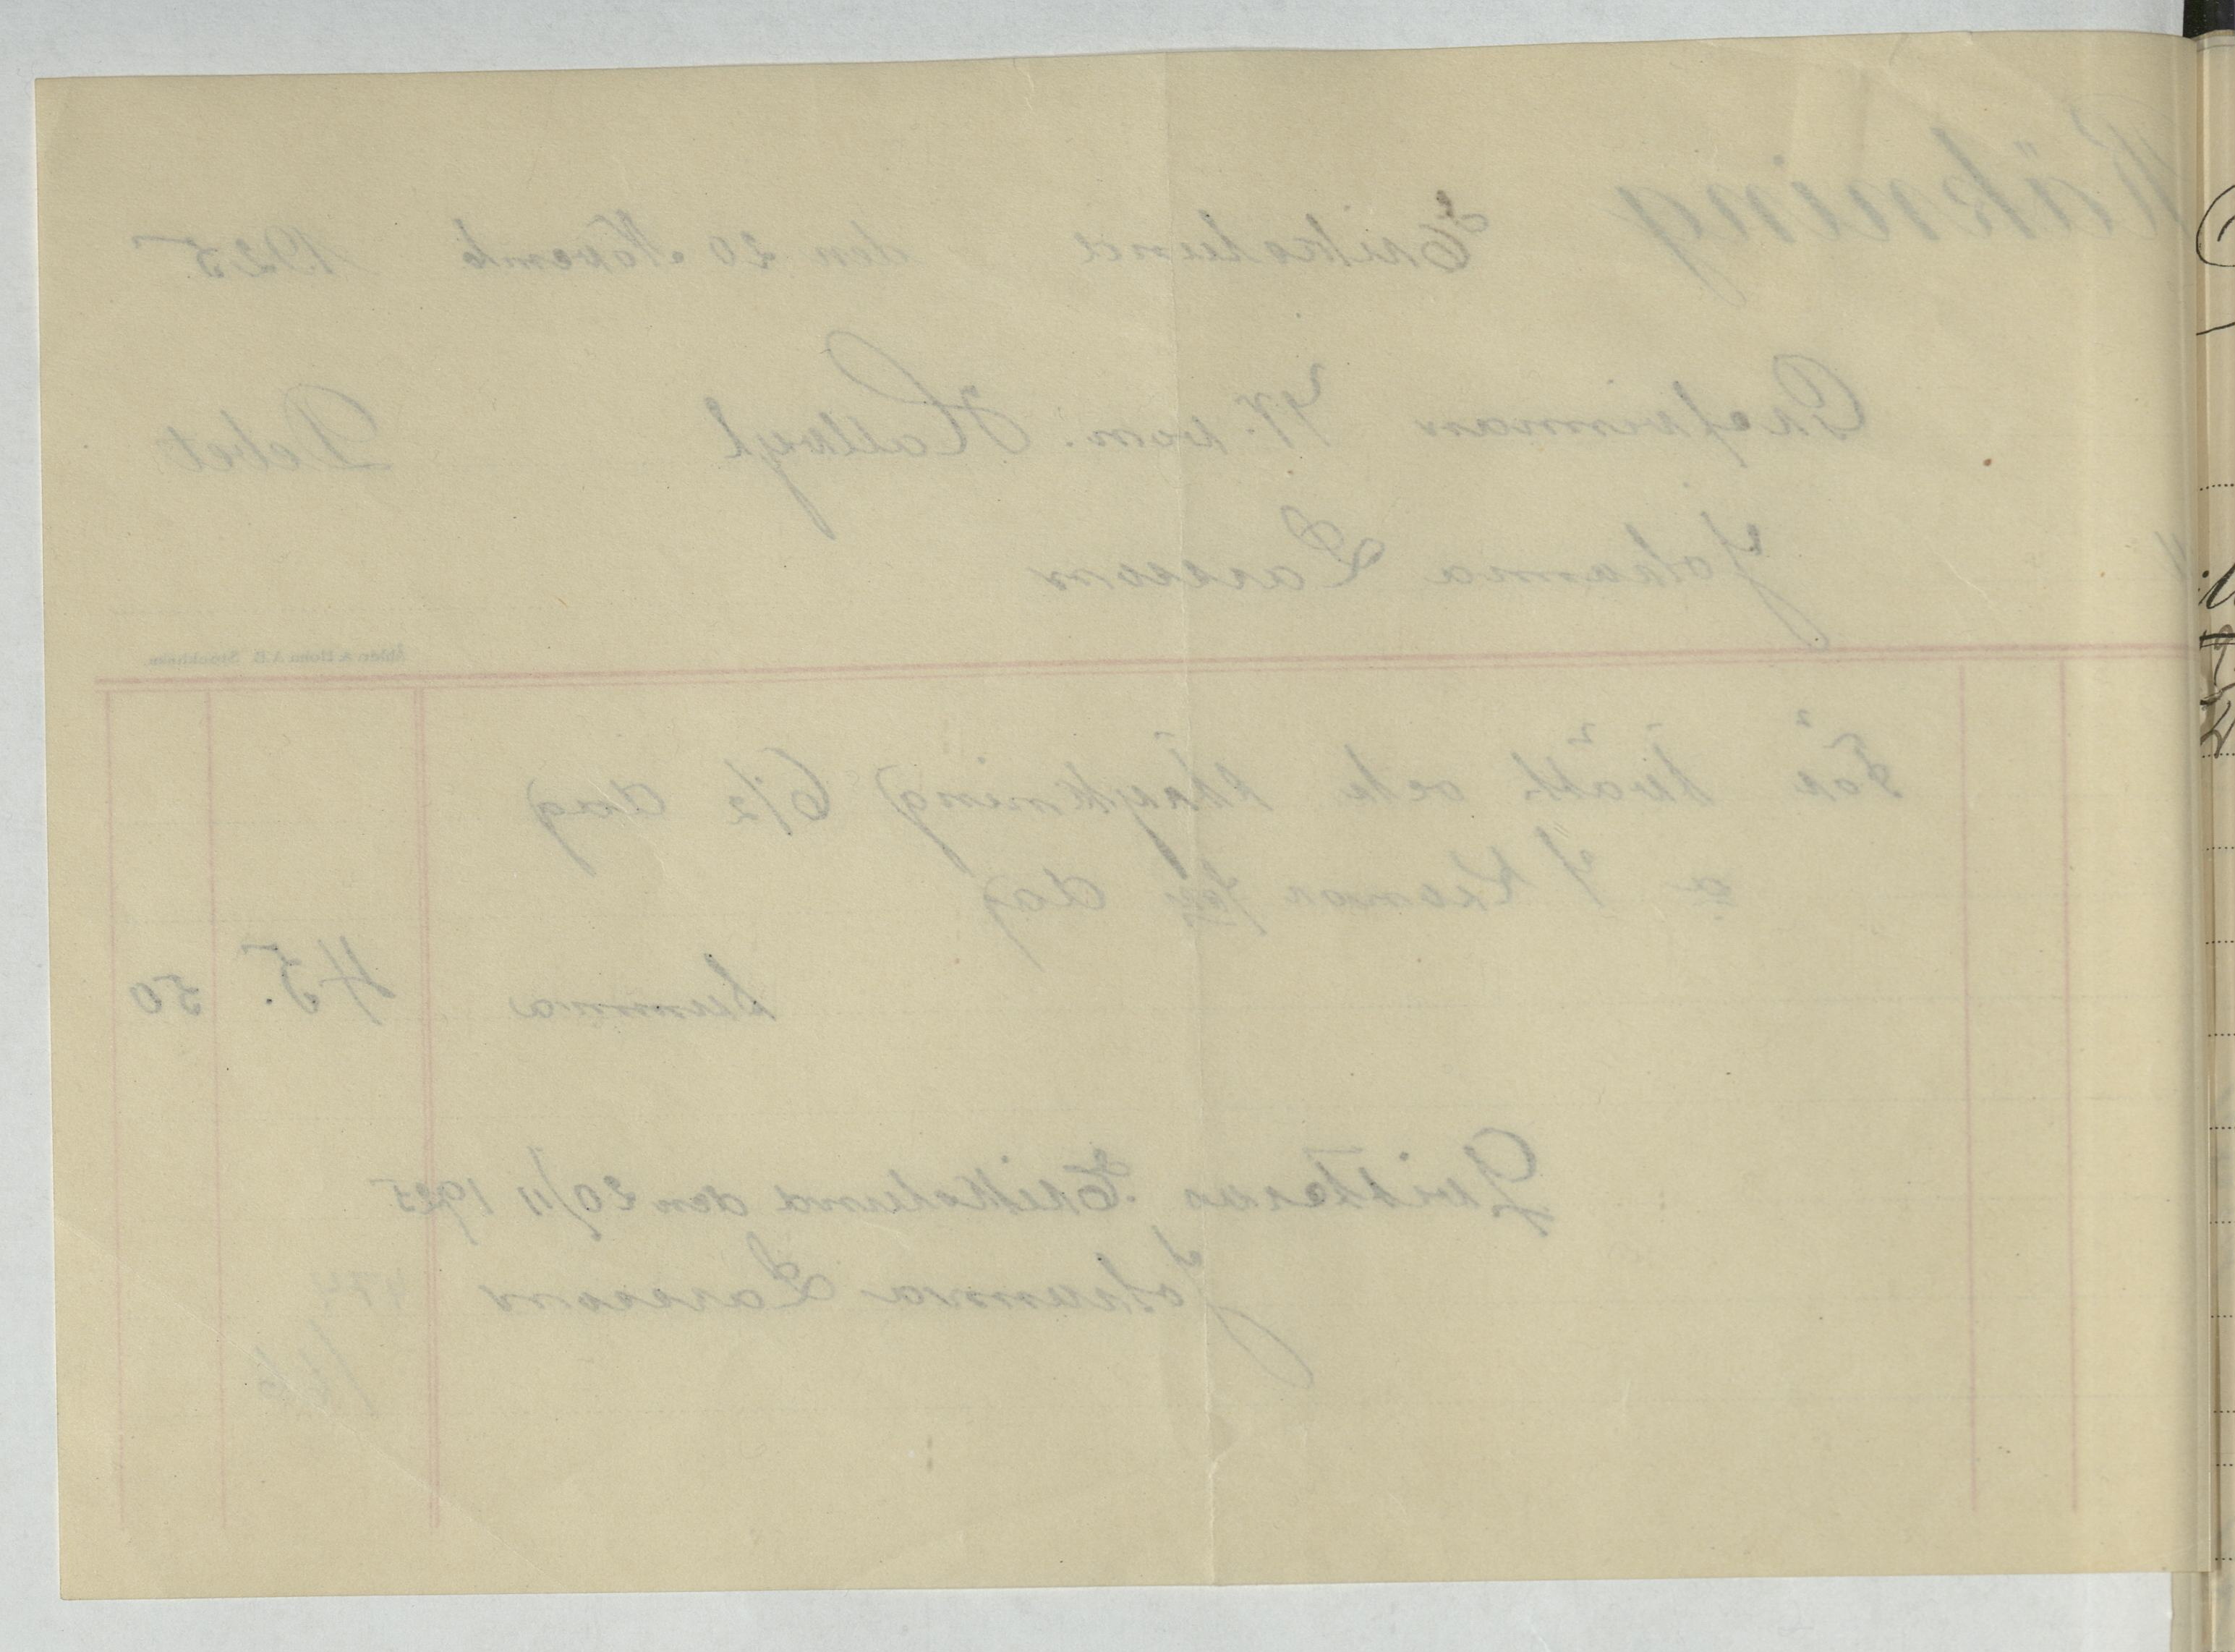 Räkning
Erikslund den 20 Novemb 1925
Grefvinnan W. von. Hallwyl Debet
Johanna Larsson
Åhlén & Holm A.B. Stockholm.
För tvätt och strykning 6 1/2 dag
a 7 Kronor per dag
Summa 45. 50
Qvitteras Erikslund den 20/11 1925
Johanna Larsson